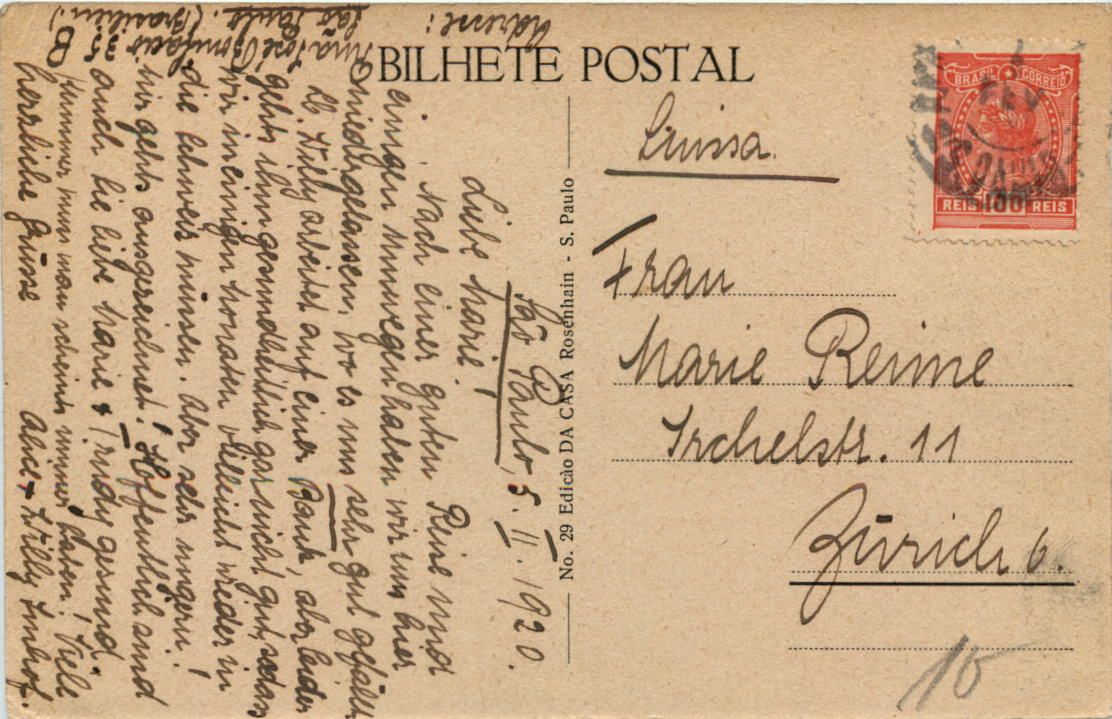 BILHETE POSTAL
BRASIL CORREIO
REIS 100 REIS
Suissa.
Frau
Marie Reime
Irchelstr. 11
Zürich 6.
15
No. 29 Edição DA CASA Rosenhain - S. Paulo
São Paulo, 5. II. 1920.
Liebe Marie!
Nach einer guten Reise und
einigen Umwegen haben wir uns hier
niedergelassen, wo es uns sehr gut gefällt.
Lb. Willy arbeitet auf einer Bank, aber leider
geht's ihm gesundheitlich gar nicht gut, sodass
wir in einigen Monaten vielleicht wieder in
die Schweiz müssen. Aber sehr ungern!
Mir geht's ausgezeichnet! Hoffentlich sind
auch Sie liebe Marie & Trudy gesund.
Kummer muss man scheints immer haben! Viele
herzliche Grüsse Alice & Willy Imhof.
Adresse:
Rua José Bonifacio 35 B
São Paulo. (Brasilien)